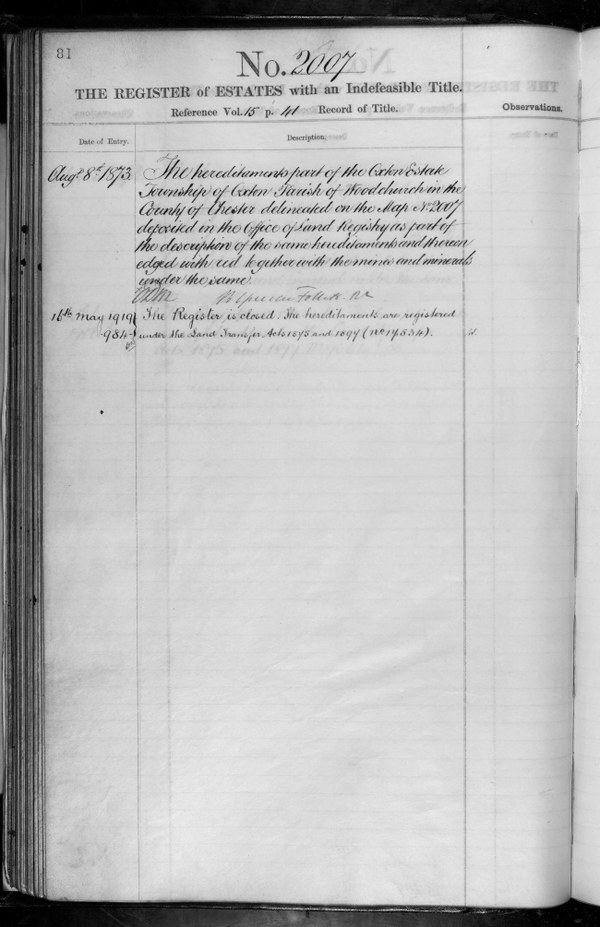 81
No. 2007
THE REGISTER of ESTATES with an Indefeasible Title.
Reference Vol. 15 p. 41 Record of Title.
Observations.
Date of Entry.
Description.
Augt 8th 1873
The hereditaments part of the Oxton Estate
Township of Oxton Parish of Woodchurch in the
County of Chester delineated on the Map No 2007
deposited in the Office of Land Registry as part of
the description of the same hereditaments and thereon
edged with red together with the mines and minerals
under the same.
Br Spencer Follett. Rr
16th May 1919
984
The Register is closed. The hereditaments are registered
under the Land Transfer Acts 1875 and 1897 (No 14534).